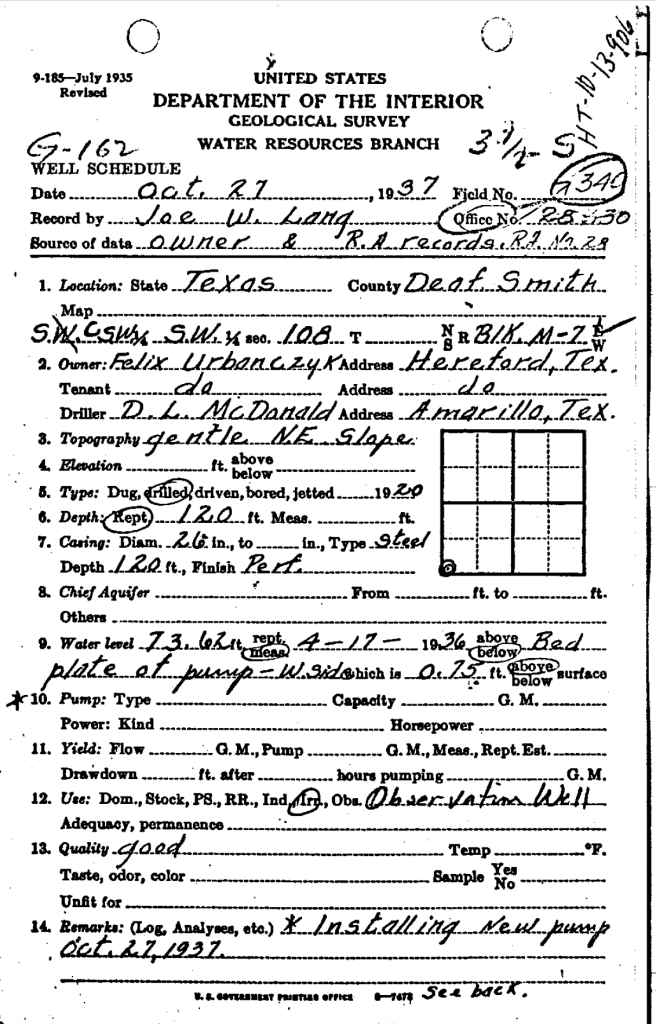 9-185—July 1935
Revised
UNITED STATES
DEPARTMENT OF THE INTERIOR
GEOLOGICAL SURVEY
WATER RESOURCES BRANCH
HT-10-13-906
G-162
3 1/2 S
WELL SCHEDULE
Date Oct. 27, 1937 Field No. 340
Record by Joe W. Lang Office No.
Source of data owner & R.A records. No. 28
1. Location: State Texas County Deaf Smith
Map
S.W. C SW¼ S.W. ¼ sec. 108 T N S R Blk. M-7 E W
2. Owner: Felix Urbanczyk Address Hereford, Tex.
Tenant do Address do
Driller D. L. McDonald Address Amarillo, Tex.
3. Topography gentle N.E. Slope
4. Elevation ft. above below
5. Type: Dug, drilled, driven, bored, jetted 1920
6. Depth: Rept. 120 ft. Meas. ft.
7. Casing: Diam. 26 in., to in., Type Steel
Depth 120 ft., Finish Perf.
8. Chief Aquifer From ft. to ft.
Others
9. Water level 73.62 ft. rept. meas. 4-17- 1936 above below Bed
plate of pump - W. side which is 0.75 ft. above below surface
* 10. Pump: Type Capacity G. M.
Power: Kind Horsepower
11. Yield: Flow G. M., Pump G. M., Meas., Rept. Est.
Drawdown ft. after hours pumping G. M.
12. Use: Dom., Stock, PS., RR., Ind., Irr., Obs. Observation Well
Adequacy, permanence
13. Quality good Temp °F.
Taste, odor, color Sample Yes No
Unfit for
14. Remarks: (Log, Analyses, etc.) * Installing New pump
Oct. 27, 1937.
U. S. GOVERNMENT PRINTING OFFICE 6—7478 See back.